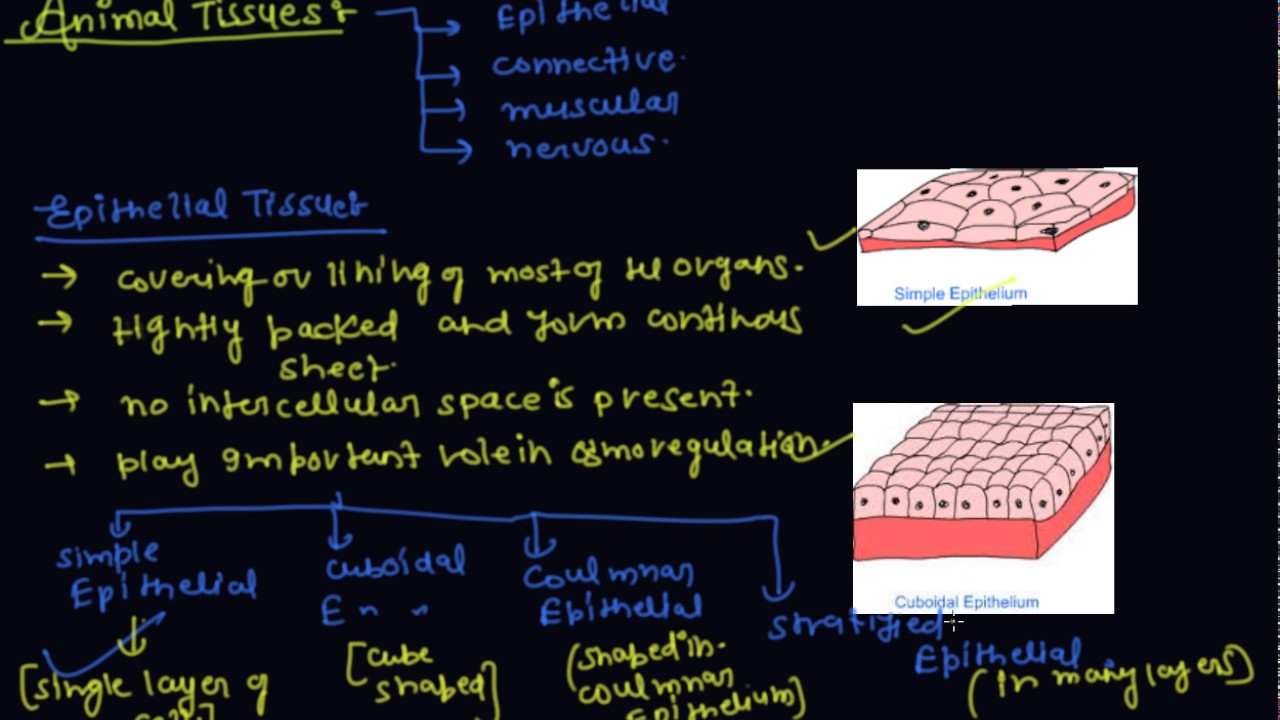 Animal Tissues:
Epithelial
connective.
muscular
nervous.
Epithelial Tissue:
→ covering or lining of most of the organs.
Simple Epithelium
→ tightly packed and form continous
sheet.
→ no intercellular space is present.
→ play important role in osmoregulation.
Cuboidal Epithelium
simple
Epithelial
[single layer of
cells]
cuboidal
E " "
[cube
shaped]
Coulmnar
Epithelial
(shaped in.
coulmnar
Epithelium)
stratified
Epithelial
(in many layers)